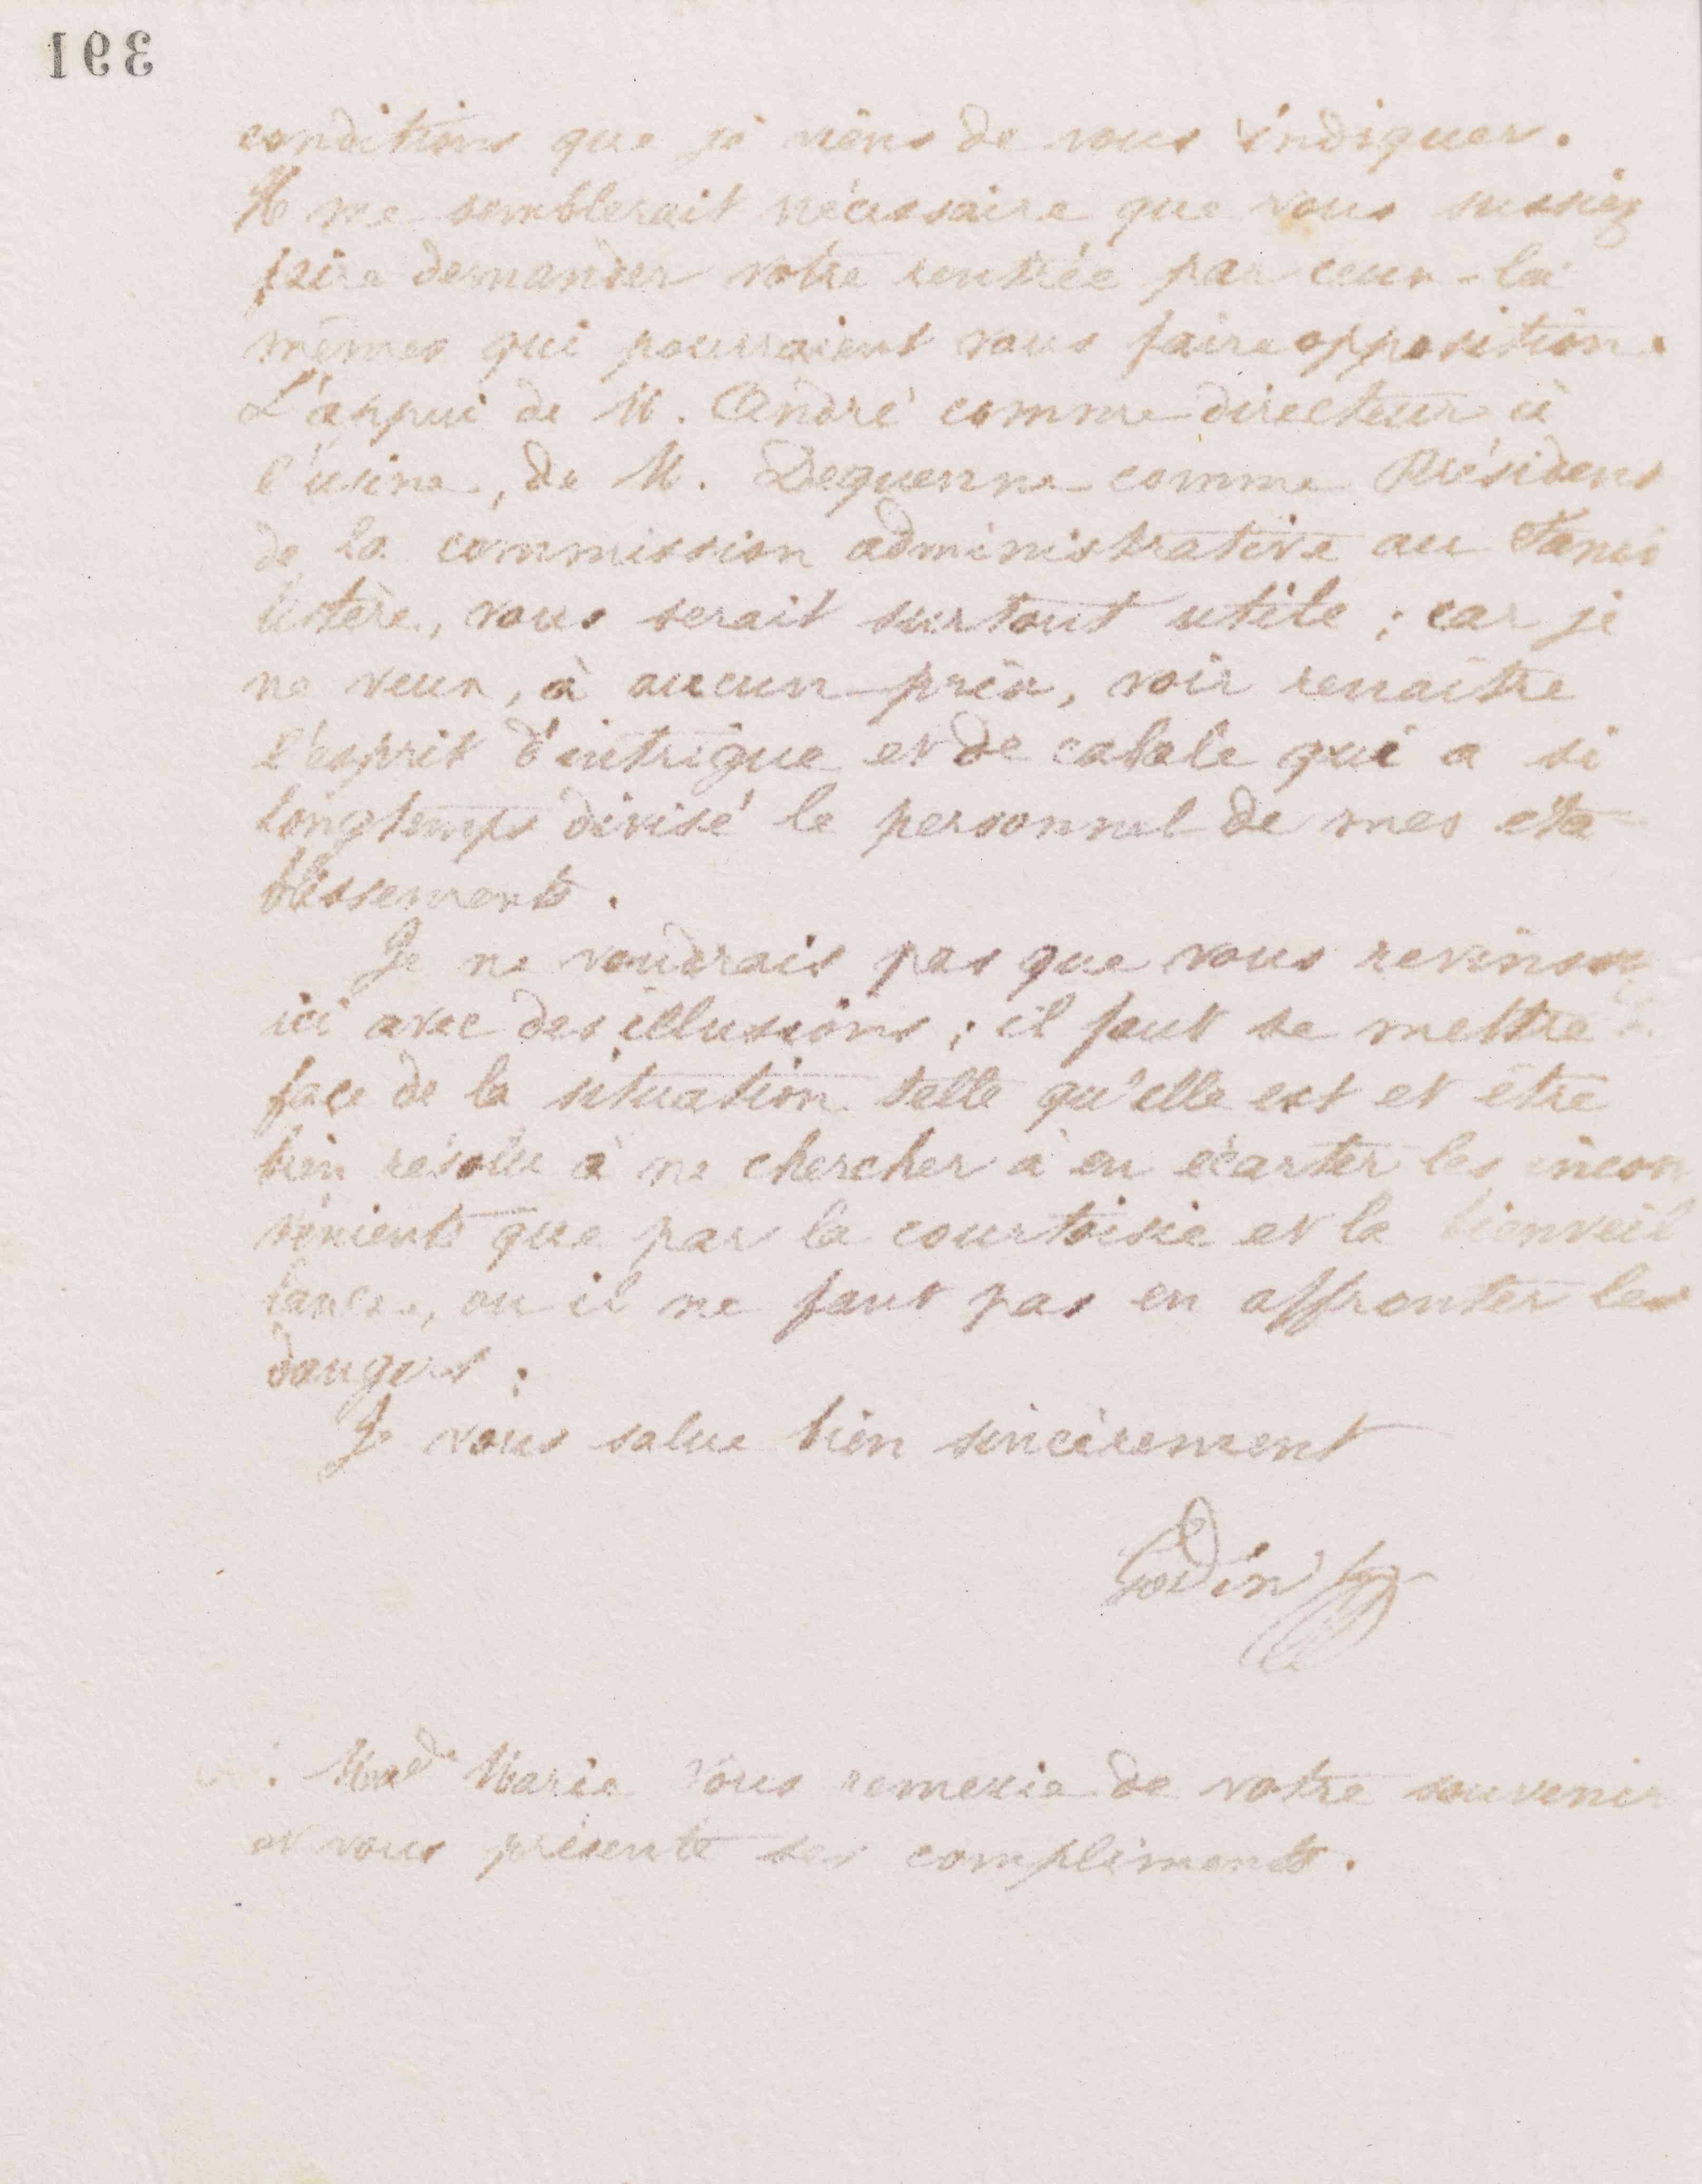 391
conditions que je viens de vous indiquer.
Il me semblerait nécessaire que vous sussiez
faire demander votre rentrée par ceux-là
mêmes qui pourraient vous faire opposition.
L'appui de M. André comme directeur à
l'usine, de M. Dequenne comme Président
de la commission administrative au Fami
listère, vous serait surtout utile ; car je
ne veux, à aucun prix, voir renaître
l'esprit d'intrigue et de cabale qui a si
longtemps divisé le personnel de mes éta
blissements.
Je ne voudrais pas que vous revinssiez
ici avec des illusions ; il faut se mettre
face de la situation telle qu'elle est et être
bien résolu à ne chercher à en écarter les incon
vénients que par la courtoisie et la bienveil
lance, ou il ne faut pas en affronter les
dangers.
Je vous salue bien sincèrement
Godin
Marie vous remercie de votre souvenir
et vous présente ses compliments.